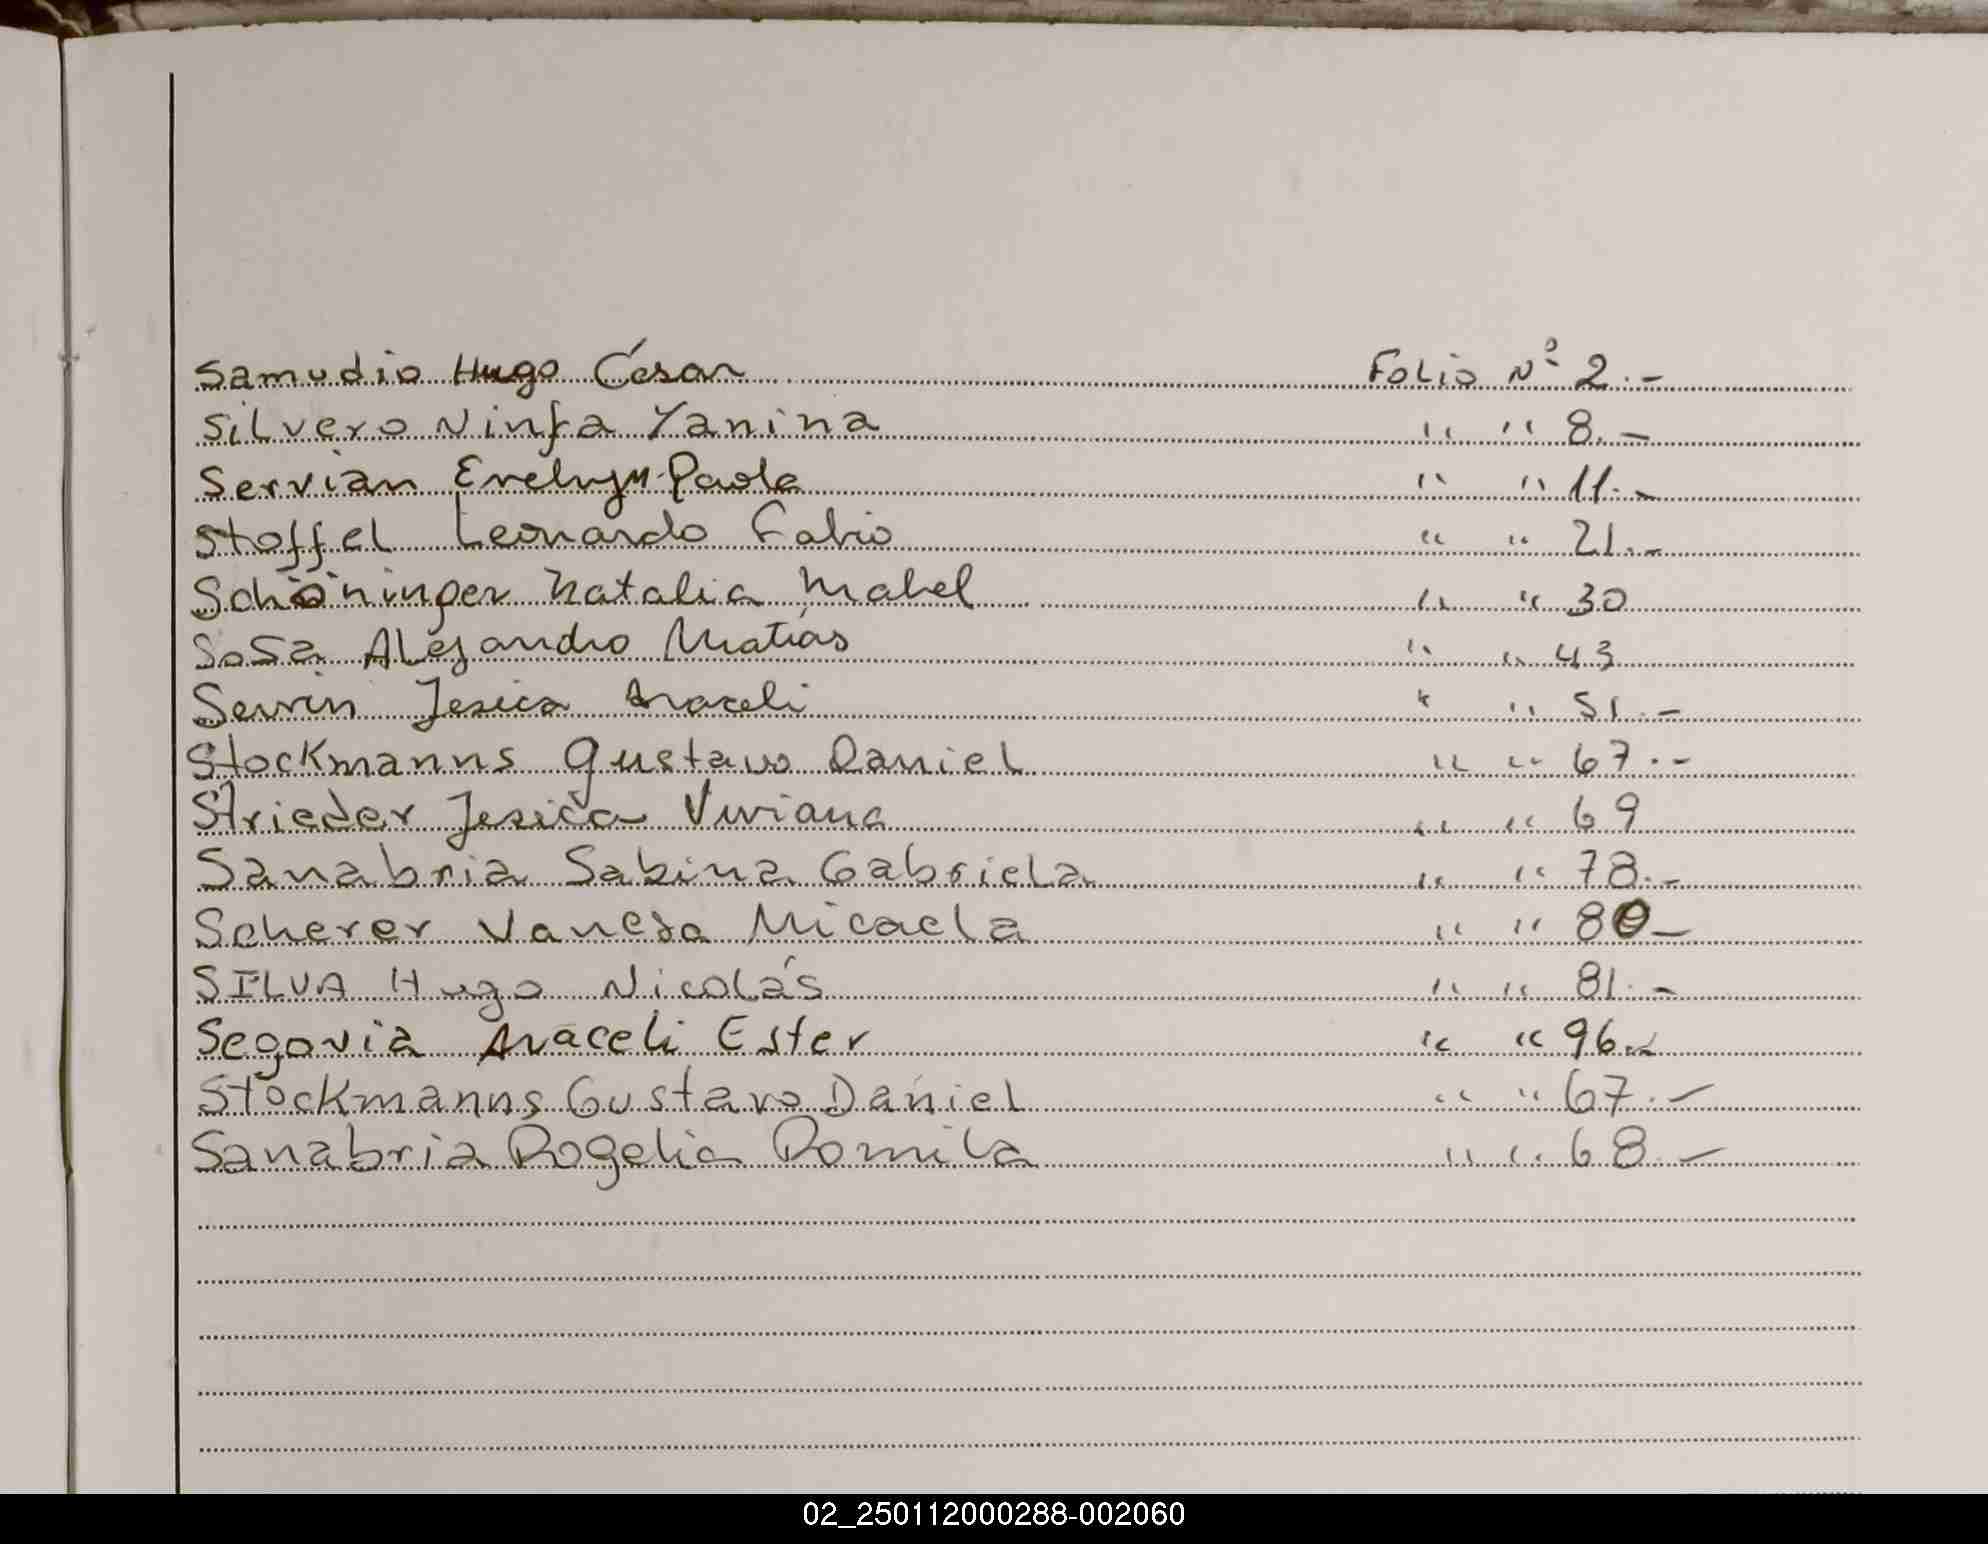 Samudio Hugo César Folio Nº 2.-
Silvero Ninfa Yanina " " 8.-
Servian Evelyn Paola " " 11.-
Stoffel Leonardo Fabio " " 21.-
Schöninger Natalia Mabel " " 30
Sosa Alejandro Matías " " 43
Servin Jesica Araceli " " 51.-
Stockmanns Gustavo Daniel " " 67.-
Strieder Jesica Viviana " " 69
Sanabria Sabina Gabriela " " 78.-
Scherer Vanesa Micaela " " 80-
SILVA Hugo Nicolás " " 81.-
Segovia Araceli Ester " " 96.-
Stockmanns Gustavo Daniel " " 67.-
Sanabria Rogelia Romila " " 68.-
02_250112000288-002060